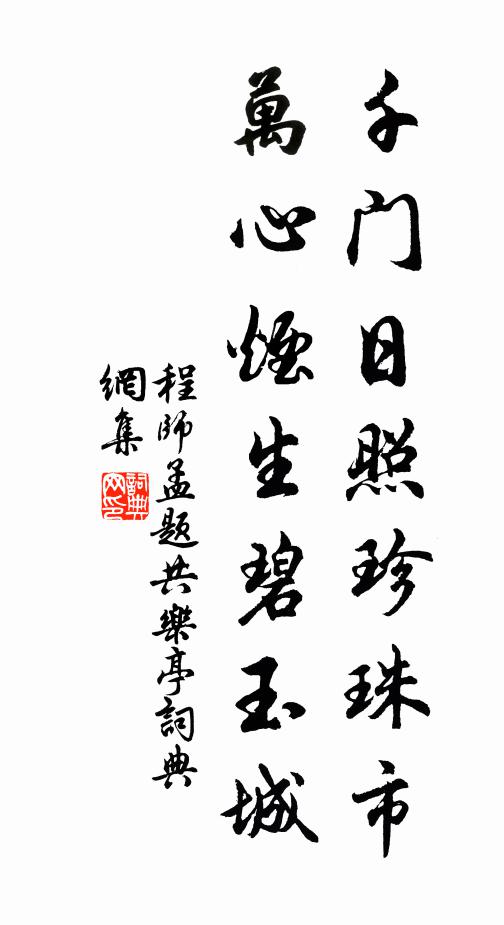 千门日照珍珠市
萬心煙生碧玉城
程師孟題共樂亭詞典
網集
詞典
网印